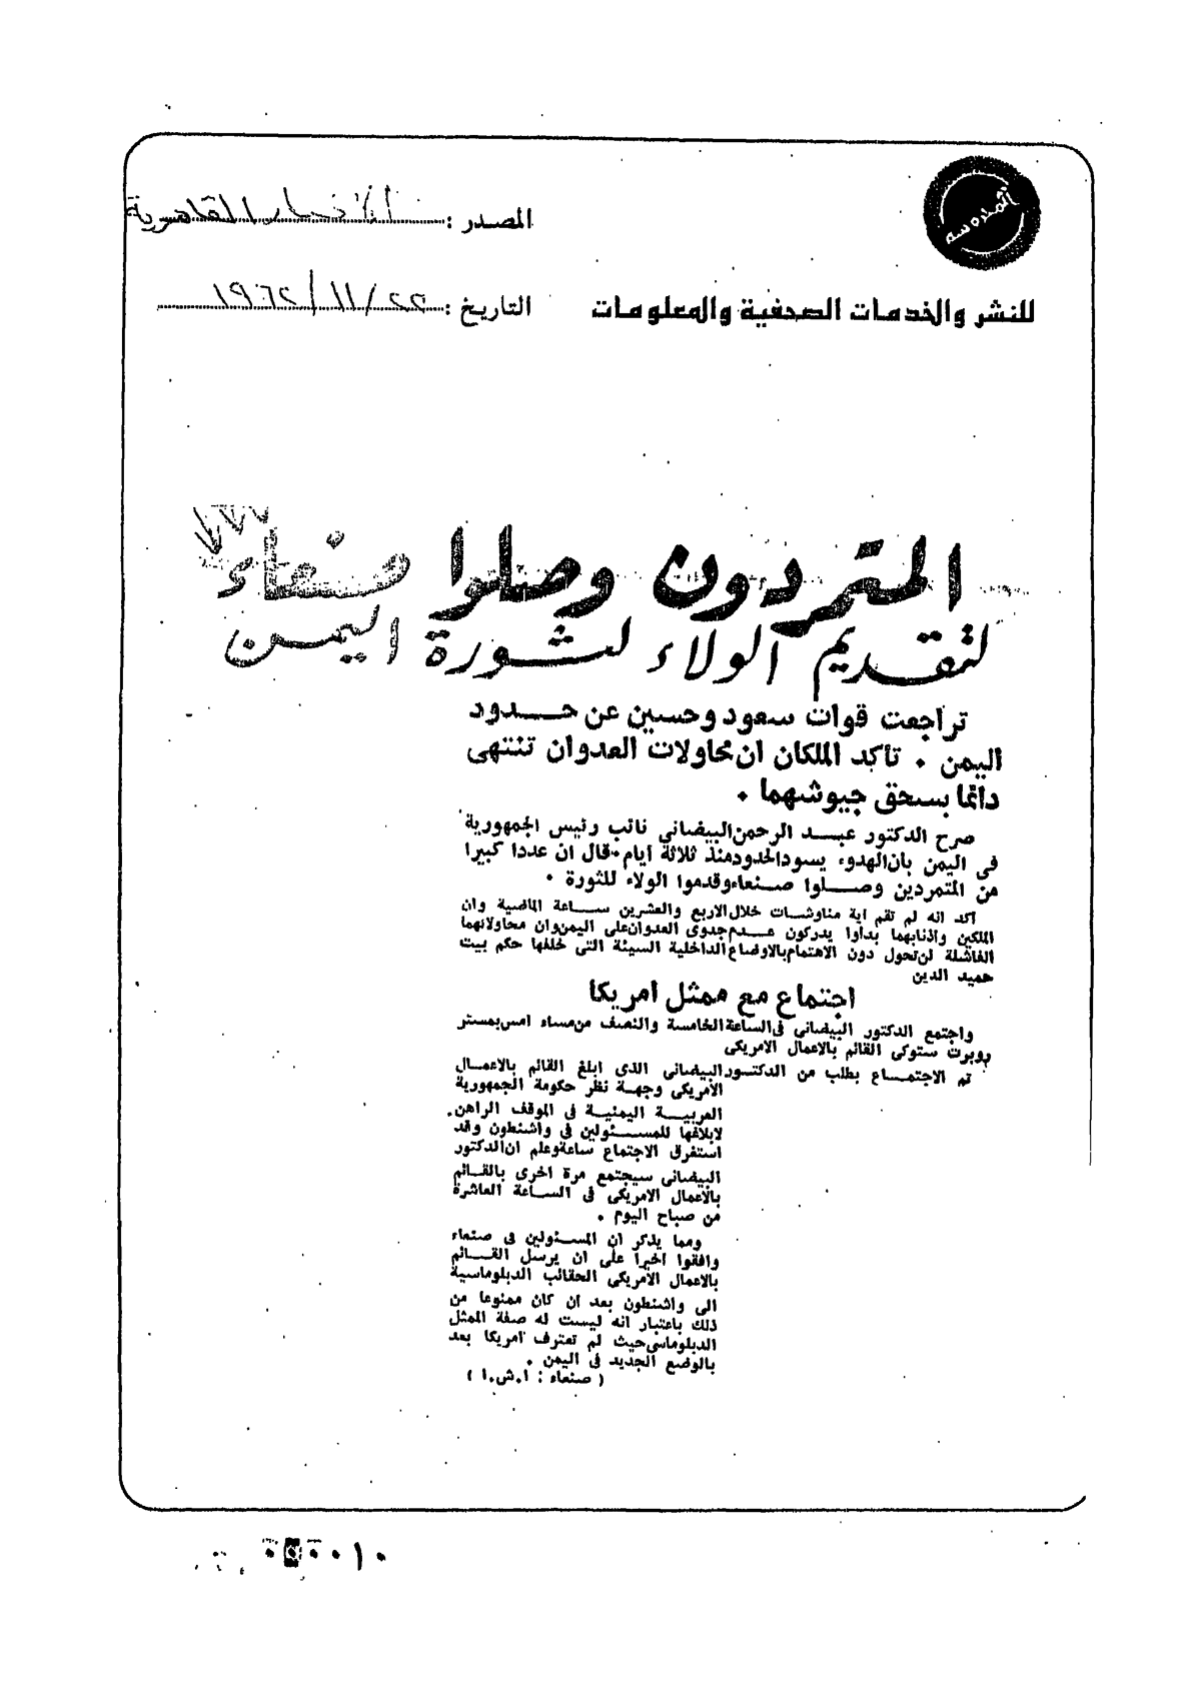 المحروسه
المصدر : الأخبار القاهرية
للنشر والخدمات الصحفية والمعلومات
التاريخ : ٢٢/ ١١/ ١٩٦٢
المتمردون وصلوا صنعاء
لتقديم الولاء لثورة اليمن
تراجعت قوات سعود وحسين عن حدود
اليمن . تأكد الملكان ان محاولات العدوان تنتهى
دائما بسحق جيوشهما .
صرح الدكتور عبد الرحمن البيضانى نائب رئيس الجمهورية
فى اليمن بان الهدوء يسود الحدود منذ ثلاثة ايام . قال ان عددا كبيرا
من المتمردين وصلوا صنعاء وقدموا الولاء للثورة .
اكد انه لم تقم اية مناوشات خلال الاربع والعشرين ساعة الماضية وان
الملكين واذنابهما بداوا يدركون عدم جدوى العدوان على اليمن وان محاولاتهما
الفاشلة لن تحول دون الاهتمام بالاوضاع الداخلية السيئة التى خلفها حكم بيت
حميد الدين
اجتماع مع ممثل امريكا
واجتمع الدكتور البيضانى فى الساعة الخامسة والنصف من مساء امس بمستر
روبرت ستوكى القائم بالاعمال الامريكى
تم الاجتماع بطلب من الدكتور البيضانى الذى ابلغ القائم بالاعمال
الامريكى وجهة نظر حكومة الجمهورية
العربية اليمنية فى الموقف الراهن .
لابلاغها للمسئولين فى واشنطون وقد
استغرق الاجتماع ساعة وعلم ان الدكتور
البيضانى سيجتمع مرة اخرى بالقائم
بالاعمال الامريكى فى الساعة العاشرة
من صباح اليوم .
ومما يذكر ان المسئولين فى صنعاء
وافقوا اخيرا على ان يرسل القائم
بالاعمال الامريكى الحقائب الدبلوماسية
الى واشنطون بعد ان كان ممنوعا من
ذلك باعتبار انه ليست له صفة الممثل
الدبلوماسى حيث لم تعترف امريكا بعد
بالوضع الجديد فى اليمن .
( صنعاء : ا.ش.ا )